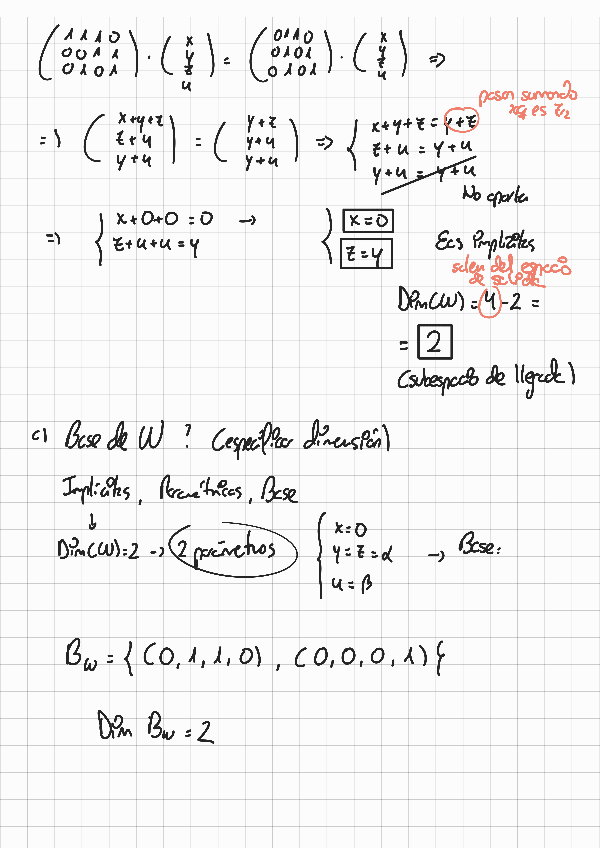 (1 1 1 0 / 0 0 1 1 / 0 1 0 1) · (x / y / z / u) = (0 1 1 0 / 0 1 0 1 / 0 1 0 1) · (x / y / z / u) =>
pasan sumando
xq es Z2
=> (x+y+z / z+u / y+u) = (y+z / y+u / y+u) => { x+y+z = y+z
z+u = y+u
y+u = y+u
No aporta
=> { x+0+0 = 0 → { x=0
z+u+u = y z=y
Ecs Implícitas
salen del espacio
de salida
Dim(W) = 4-2 =
= 2
(subespacio de llegada)
c) Base de W ? (especificar dimensión)
Implícitas, Paramétricas, Base
↓
Dim(W)=2 → 2 parámetros { x=0
y=z=α → Base:
u=β
Bw = { (0,1,1,0), (0,0,0,1) }
Dim Bw = 2